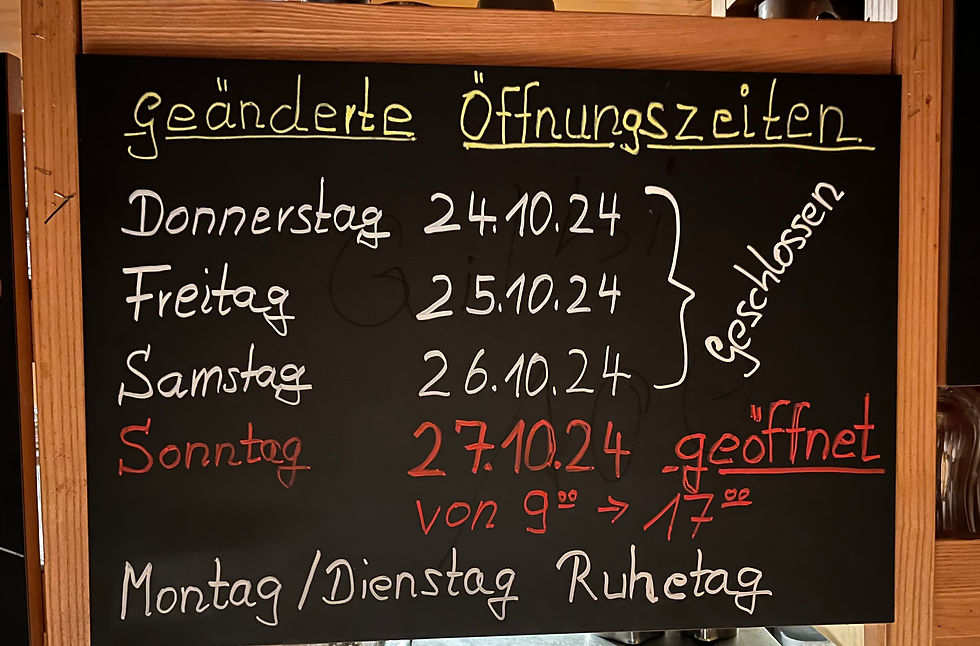 geänderte Öffnungszeiten
Donnerstag 24.10.24
Freitag 25.10.24
Samstag 26.10.24
geschlossen
Sonntag 27.10.24 geöffnet
von 9⁰⁰ → 17⁰⁰
Montag/Dienstag Ruhetag